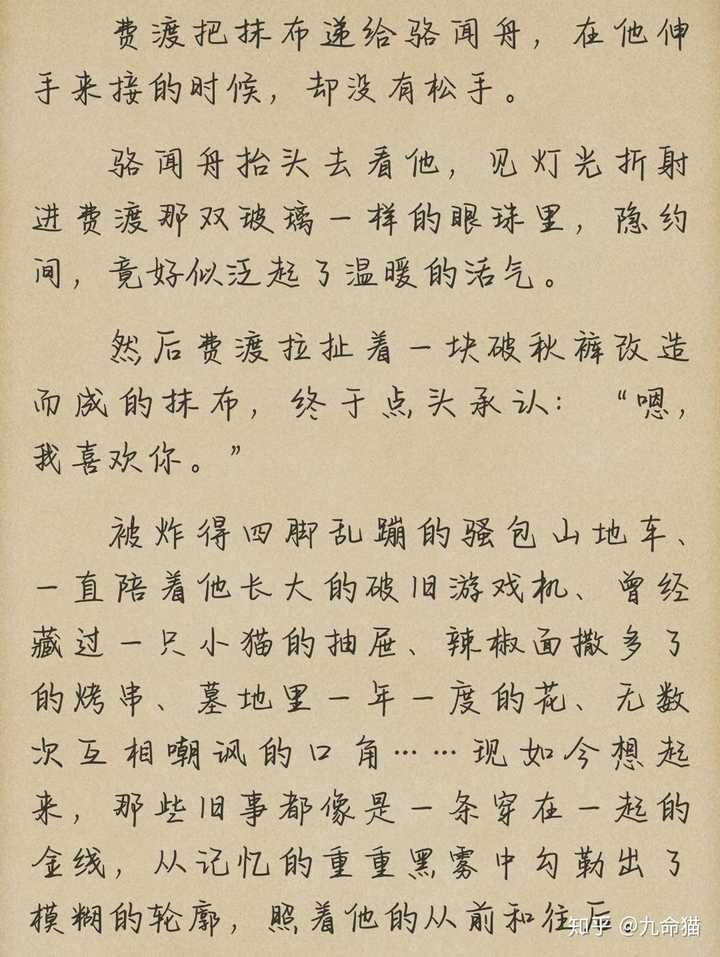 费渡把抹布递给骆闻舟，在他伸
手来接的时候，却没有松手。
骆闻舟抬头去看他，见灯光折射
进费渡那双玻璃一样的眼珠里，隐约
间，竟好似泛起了温暖的活气。
然后费渡拉扯着一块破秋裤改造
而成的抹布，终于点头承认：“嗯，
我喜欢你。”
被炸得四脚乱蹦的骚包山地车、
一直陪着他长大的破旧游戏机、曾经
藏过一只小猫的抽屉、辣椒面撒多了
的烤串、墓地里一年一度的花、无数
次互相嘲讽的口角……现如今想起
来，那些旧事都像是一条穿在一起的
金线，从记忆的重重黑雾中勾勒出了
模糊的轮廓，照着他的从前和往后
知乎 @九命猫